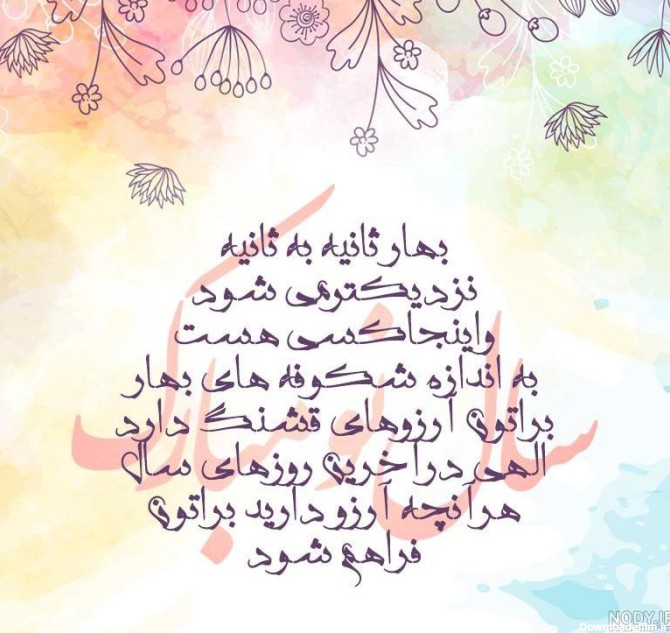 بهار ثانیه به ثانیه
نزدیکترمی شود
واینجاکسی هست
به اندازه شکوفه های بهار
براتون آرزوهای قشنگ دارد
الهی درآخرین روزهای سال
هرآنچه آرزو دارید براتون
فراهم شود
سال نو مبارک
NODY.IR